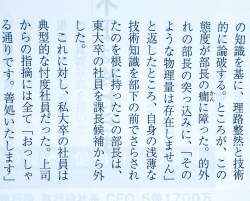 の知識を基に、理路整然と技術
的に論破する。ところが、この
態度が部長の癇に障った。的外
れの部長の突っ込みに、「その
ような物理量は存在しません」
と返したところ、自身の浅薄な
技術知識を部下の前でさらされ
たのを根に持ったこの部長は、
東大卒の社員を課長候補から外
した。
これに対し、私大卒の社員は
典型的な忖度社員だった。上司
からの指摘には全て「おっしゃ
る通りです。善処いたします」